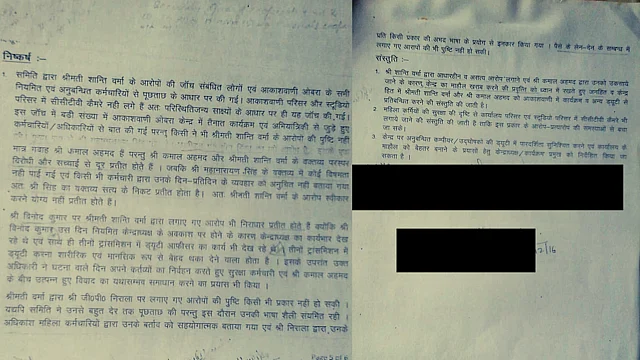 निष्कर्ष :-
1. समिति द्वारा श्रीमती शान्ति वर्मा के आरोपों की जाँच संबंधित लोगों एवं आकाशवाणी ओबरा के सभी
नियमित एवं अनुबन्धित कर्मचारियों से पूछताछ के आधार पर की गई। आकाशवाणी परिसर और स्टूडियो
परिसर में सीसीटीवी कैमरे नही लगे हैं अतः परिस्थितिजन्य साक्ष्यों के आधार पर ही यह जाँच की गई।
इस जाँच में बड़ी संख्या में आकाशवाणी ओबरा केन्द्र में तैनात कार्यक्रम एवं अभियांत्रिकी से जुड़े हुए
कर्मचारियों/अधिकारियों से बात की गई परन्तु किसी ने भी श्रीमती शान्ति वर्मा के आरोपों की पुष्टि नहीं
मात्र गवाह श्री कमाल अहमद हैं परन्तु श्री कमाल अहमद और श्रीमती शान्ति वर्मा के वक्तव्य परस्पर
विरोधी और सच्चाई से दूर प्रतीत होते हैं। जबकि श्री महानारायण सिंह के वक्तव्य में कोई विषमता
नही पाई गई एवं किसी भी कर्मचारी द्वारा उनके दिन-प्रतिदिन के व्यवहार को अनुचित नहीं बताया गया
अतः श्री सिंह का वक्तव्य सत्य के निकट प्रतीत होता है। अतः श्रीमती शान्ति वर्मा के आरोप स्वीकार
करने योग्य नहीं प्रतीत होते हैं।
श्री विनोद कुमार पर श्रीमती शान्ति वर्मा द्वारा लगाए गए आरोप भी निराधार प्रतीत होते हैं क्योंकि श्री
विनोद कुमार उस दिन नियमित केन्द्राध्यक्ष के अवकाश पर होने के कारण केन्द्राध्यक्ष का कार्यभार देख
रहे थे एवं साथ ही तीनों ट्रांसमिशन में ड्यूटी आफीसर का कार्य भी देख रहे थे। तीनों ट्रांसमिशन में
ड्यूटी करना शारीरिक एवं मानसिक रूप से बेहद थका देने वाला होता है। इसके उपरांत उक्त
अधिकारी ने घटना वाले दिन अपने कर्तव्यों का निर्वहन करते हुए सुरक्षा कर्मचारी एवं श्री कमाल अहमद
के बीच उत्पन्न हुए विवाद का यथासम्भव समाधान करने का प्रयास भी किया।
श्रीमती वर्मा द्वारा श्री जी०पी० निराला पर लगाए गए आरोपों की पुष्टि किसी भी प्रकार नहीं हो सकी।
यद्यपि समिति ने उनसे बहुत देर तक पूछताछ की परन्तु इस दौरान उनकी भाषा शैली संयमित रही।
अधिकांश महिला कर्मचारियों द्वारा उनके बर्ताव को सहयोगात्मक बताया गया एवं श्री निराला द्वारा उनके
प्रति किसी प्रकार की अभद्र भाषा के प्रयोग से इनकार किया गया। पैसे के लेन-देन के सम्बन्ध में
लगाए गए आरोपों की भी पुष्टि नहीं हो सकी।
संस्तुति :-
1. श्री शान्ति वर्मा द्वारा आधारहीन व असत्य आरोप लगाने एवं श्री कमाल अहमद द्वारा उनको उकसाये
जाने के कारण केन्द्र का माहौल खराब करने की प्रवृत्ति को ध्यान में रखते हुए जनहित व केन्द्र
हित में श्रीमती शान्ति वर्मा और श्री कमाल अहमद को आकाशवाणी में कार्यक्रम व अन्य ड्यूटी से
प्रतिबन्धित करने की संस्तुति की जाती है।
2. महिला कर्मियों की सुरक्षा की दृष्टि से कार्यालय परिसर एवं स्टूडियो परिसर में सीसीटीवी कैमरे भी
लगाये जाने की संस्तुति की जाती है ताकि इस प्रकार के आरोप-प्रत्यारोप की समस्याओं से बचा
जा सके।
3. केन्द्र पर अनुबन्धित कम्पीयर/उद्घोषकों की ड्यूटी में पारदर्शिता सुनिश्चित करने एवं कार्यालय के
माहौल को बेहतर बनाने के प्रयासों हेतु केन्द्राध्यक्ष/कार्यक्रम प्रमुख को निर्देशित किया जा
सकता है।